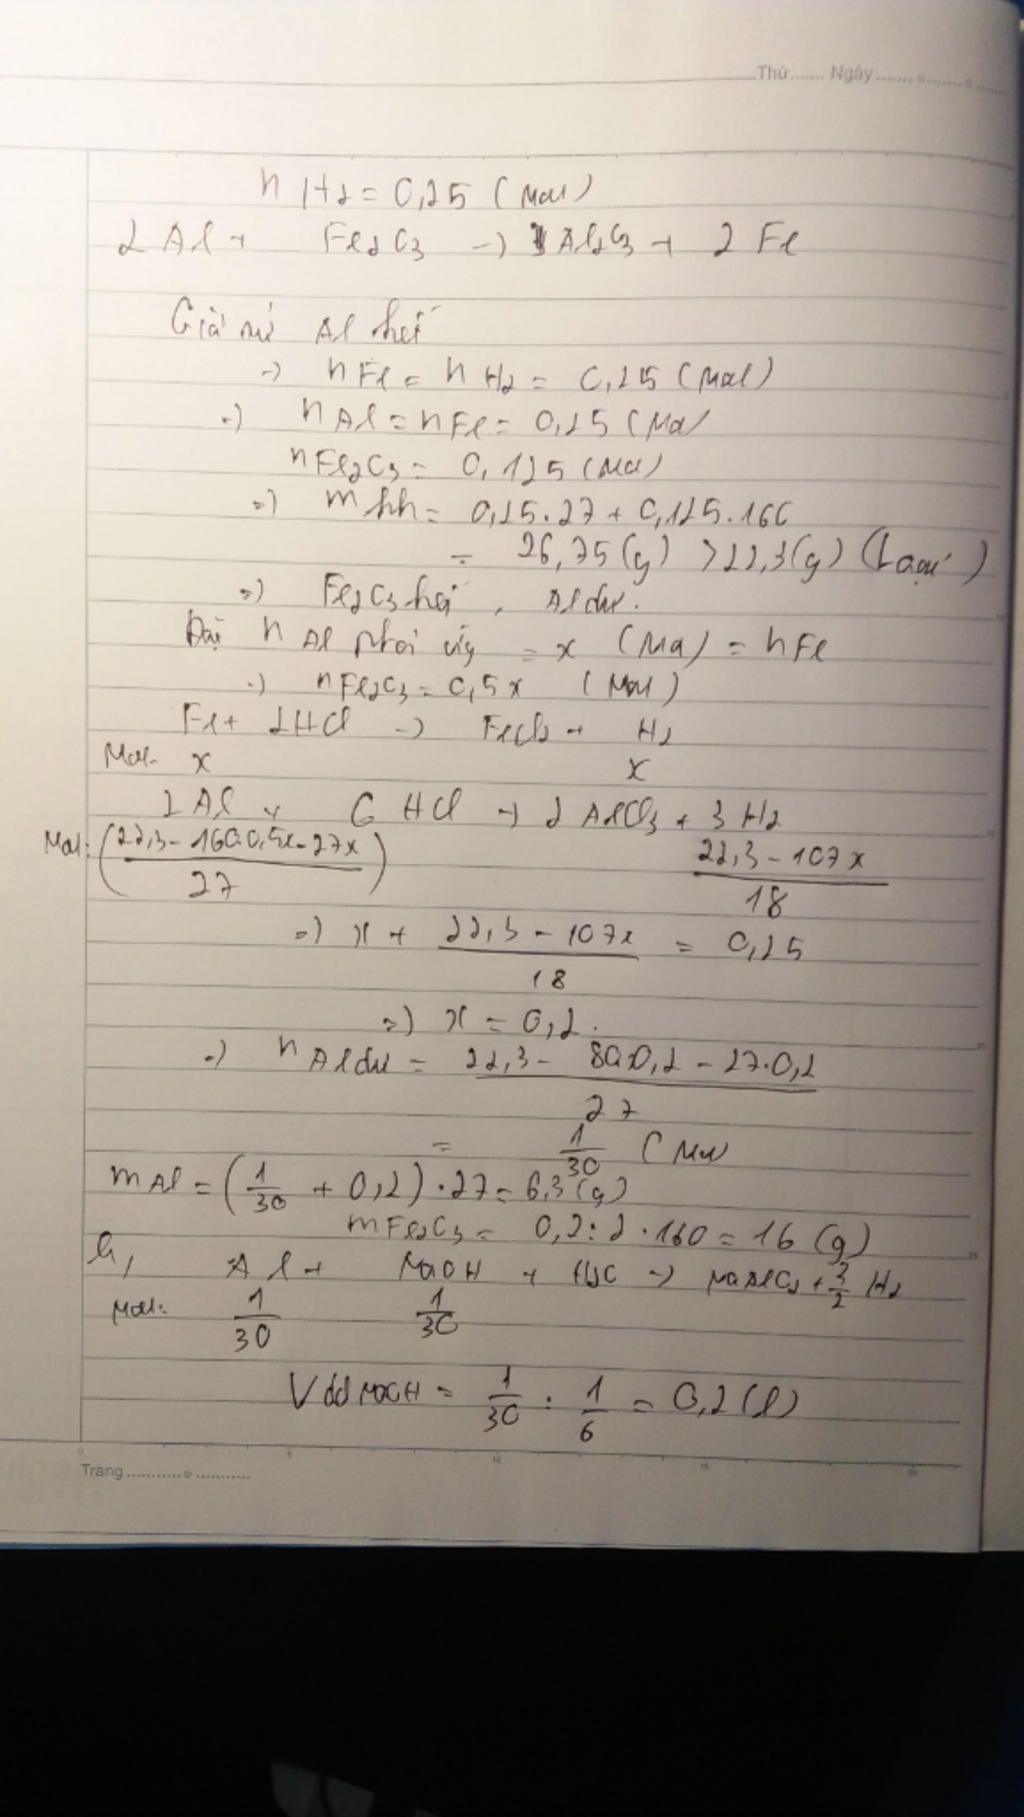 Thứ....... Ngày........o........o......
n H2 = 0,25 (mol)
2 Al + Fe2O3 -> Al2O3 + 2 Fe
Giả sử Al hết
-> n Fe = n H2 = 0,25 (mol)
-> n Al = n Fe = 0,25 (mol
n Fe2O3 = 0,125 (mol)
=> m hh = 0,25.27 + 0,125.160
= 26,75 (g) > 22,3 (g) (Loại)
=> Fe2O3 hết, Al dư.
Đặt n Al phản ứng = x (mol) = n Fe
-> n Fe2O3 = 0,5x (mol)
Fe + 2HCl -> FeCl2 + H2
Mol: x x
2 Al + 6 HCl -> 2 AlCl3 + 3 H2
Mol: (22,3 - 160.0,5x - 27x / 27) 22,3 - 107x / 18
=> x + 22,3 - 107x / 18 = 0,25
=> x = 0,2.
-> n Al dư = 22,3 - 80.0,2 - 27.0,2 / 27
= 1/30 (mol
m Al = (1/30 + 0,2) . 27 = 6,3 (g)
m Fe2O3 = 0,2 : 2 . 160 = 16 (g)
b, Al + NaOH + H2O -> NaAlO2 + 3/2 H2
Mol: 1/30 1/30
V dd NaOH = 1/30 : 1/6 = 0,2 (l)
Trang...........o...........